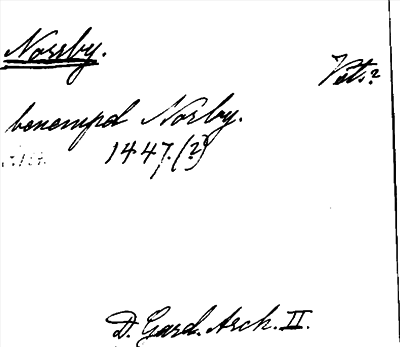 Norrby.
Vets?
benempd Norby.
1447.(?)
D. Gard. Arch. II.